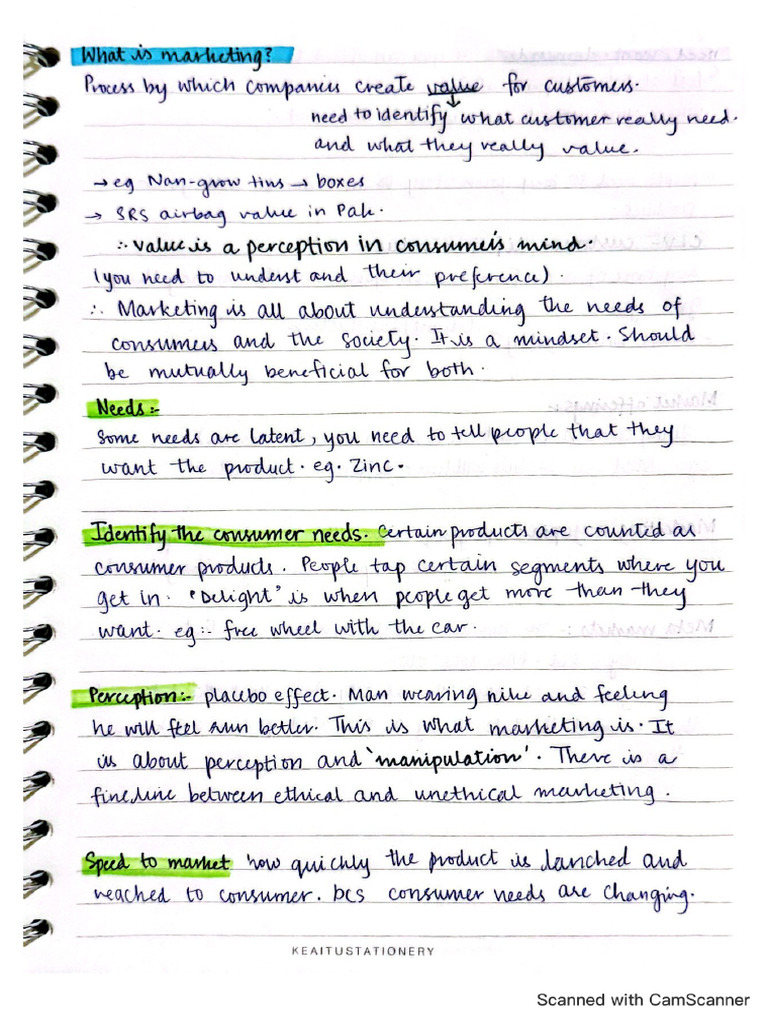 What is marketing?
Process by which companies create value for customers.
need to identify what customer really need.
and what they really value.
→ eg Nan-grow tins → boxes
→ SRS airbag value in Pak.
∴ value is a perception in consumer's mind.
(you need to understand their preference).
∴ Marketing is all about understanding the needs of
consumers and the society. It is a mindset. Should
be mutually beneficial for both.
Needs:-
Some needs are latent, you need to tell people that they
want the product. eg. Zinc.
Identify the consumer needs. Certain products are counted as
consumer products. People tap certain segments where you
get in. 'Delight' is when people get more than they
want. eg:- free wheel with the car.
Perception:- placebo effect. Man wearing nike and feeling
he will feel run better. This is what marketing is. It
is about perception and 'manipulation'. There is a
fine line between ethical and unethical marketing.
Speed to market how quickly the product is lanched and
reached to consumer. bcs consumer needs are changing.
KEAITUSTATIONERY
Scanned with CamScanner